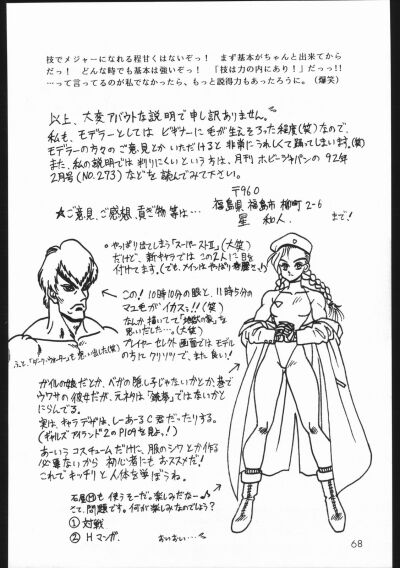 技でメジャーになれる程甘くはないぞっ！　まず基本がちゃんと出来てから
だっ！　どんな時でも基本は強いぞっ！　「技は力の内にあり！」だっっ!!
…って言ってるのが私でなかったら、もっと説得力もあったろうに。（爆笑）
以上、大変アバウトな説明で申し訳ありません。
私も、モデラーとしてはビギナーに毛が生えそろった程度(笑)なので、
モデラーの方々のご意見とかいただけると非常にうれしくて踊ってしまいます。(笑)
また、私の説明では判りにくいという方は、月刊ホビージャパンの92年
2月号(NO.273)などを読んでみて下さい。
〒960
福島県福島市柳町2-6
星 和人 まで！
★ご意見、ご感想、貢ぎ物等は…
○やっぱり出てしまう「スーパーストⅡ」(大笑)
だけど、新キャラではこの2人に目を
付けてます。(でも、メインはやっぱり春麗さ♪)
この！10時10分の眼と、11時5分の
マユ毛がイカスゥ!!(笑)
なんか描いてて「地獄の家」を
思いだした…。(大笑)
プレイヤーセレクト画面ではモデル
の方にクリソツで、また良い！
ガイルの娘だとか、ベガの隠し子じゃないかとか、巷で
ウワサの彼女だが、元ネタは「銃夢」ではないかと
にらんでる。
実は、キャラデザは、しーあーるC君だったりする。
(ギャルズアイランド2のP109を見よ、！)
あーいうコスチュームだけに、服のシワとか作る
必要ないから初心者にもおススメだ！
これでキッチリと人体を学ぼうね。
石屋Ⓗも使うそーだ。楽しみだなー♪
さて、問題です。何が楽しみなのでしょう？
①対戦
②Hマンガ.
おいおい…
68